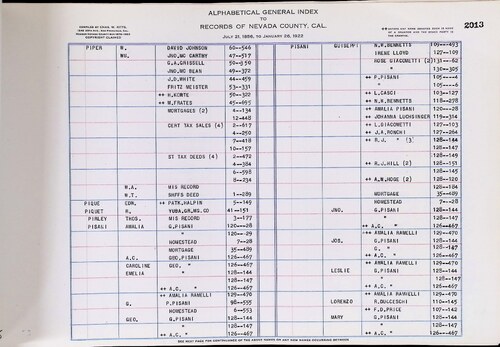 ALPHABETICAL GENERAL INDEX
TO
RECORDS OF NEVADA COUNTY, CAL.
JULY 21, 1856, TO JANUARY 26, 1922
COPYRIGHT CLAIMED
2013
PIPER W. DAVID JOHNSON 60--546
WM. JNO. MC CARTHY 47--517
G.A. GRISSELL 50--350
JNO. MC BEAN 49--372
J.D. WHITE 44--459
FRITZ MEISTER 53--331
++ H. KONTE 50--302
++ W. FRATES 45--695
MORTGAGES (2) 4--134
12--448
CERT TAX SALES (4) 3--617
4--250
7--418
10--157
ST TAX DEEDS (4) 2--472
4--384
6--598
8--234
W.A. MIS RECORD
W.T. SHFFS DEED 1--289
PIQUE EDW. ++ PATK. HALPIN 5--149
PIQUET H. YUBA.GR.MG.CO 41--151
PIRLEY THOS. MIS RECORD 3--177
PISANI AMALIA G. PISANI 120--28
" 120--29
HOMESTEAD 7--28
MORTGAGE 35--489
A.C. GEO. PISANI 126--467
CAROLINE GEO. " 126--467
EMELIA " 128--144
" 128--147
++ A.C. " 126--467
++ AMALIA RAMELLI 129--470
G. P. PISANI 98--555
HOMESTEAD 6--553
GEO. G. PISANI 128--144
" 128--147
++ A.C. " 126--467
PISANI GUISEPPI N.W. BENNETTS 109--493
IRENE LLOYD 127--109
ROSE GIACONETTI (2) 131--62
" 130--305
++ P. PISANI 105--4
" 105--6
++ L. CASCI 103--127
++ N.W. BENNETTS 118--278
++ AMALIA PISANI 120--28
++ JOHANNA LUCHSINGER 119--314
++ L. GIACOMETTI 127--103
++ J.A. RONCHI 127--264
++ R.J. " (3) 128--144
128--147
128--149
++ R.J. HILL (2) 128--151
128--145
++ A.M. HOGE (2) 128--120
128--184
MORTGAGE 35--489
HOMESTEAD 7--28
JNO. G. PISANI 128--144
" 128--147
++ A.C. " 126--467
++ AMALIA RAMELLI 129--470
JOS. G. PISANI 128--144
G. " 128--147
++ A.C. " 126--467
++ AMALIA RAMELLI 129--470
LESLIE G. PISANI 128--144
" 128--147
++ A.C. " 126--467
++ AMALIA RAMELLI 129--470
LORENZO R. BULCESCHI 110--145
++ F.D. PRICE 107--142
MARY G. PISANI 128--144
" 128--147
++ A.C. " 126--467